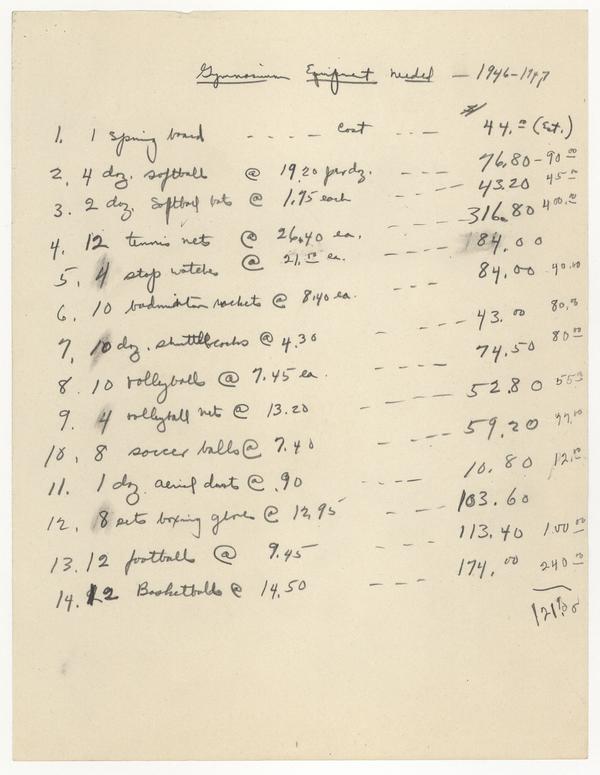 Gymnasium Equipment needed — 1946-1947
1. 1 Spring board - - - - cost - - - 44.00 (Est.)
2. 4 doz. softballs @ 19.20 per dz. - - - - 76.80 - 90.00
3. 2 doz. Softball bats @ 1.75 each - - - - 43.20 45.00
4. 12 tennis nets @ 26.40 ea. - - - - 316.80 400.00
5. 4 stop watches @ 21.00 ea. - - - - 84.00
6. 10 badminton rackets @ 8.40 ea. - - - 84.00 90.00
7. 10 doz. shuttlecocks @ 4.30 - - - - 43.00 80.00
8. 10 volleyballs @ 7.45 ea. - - - - 74.50 80.00
9. 4 volleyball nets @ 13.20 - - - - 52.80 55.00
10. 8 soccer balls @ 7.40 - - - - 59.20
11. 1 doz. aerial darts @ .90 - - - 10.80 12.00
12. 8 sets boxing gloves @ 12.95 - - - - 103.60
13. 12 footballs @ 9.45 - - - - 113.40 100.00
14. 12 Basketballs @ 14.50 - - - - 174.00 240.00